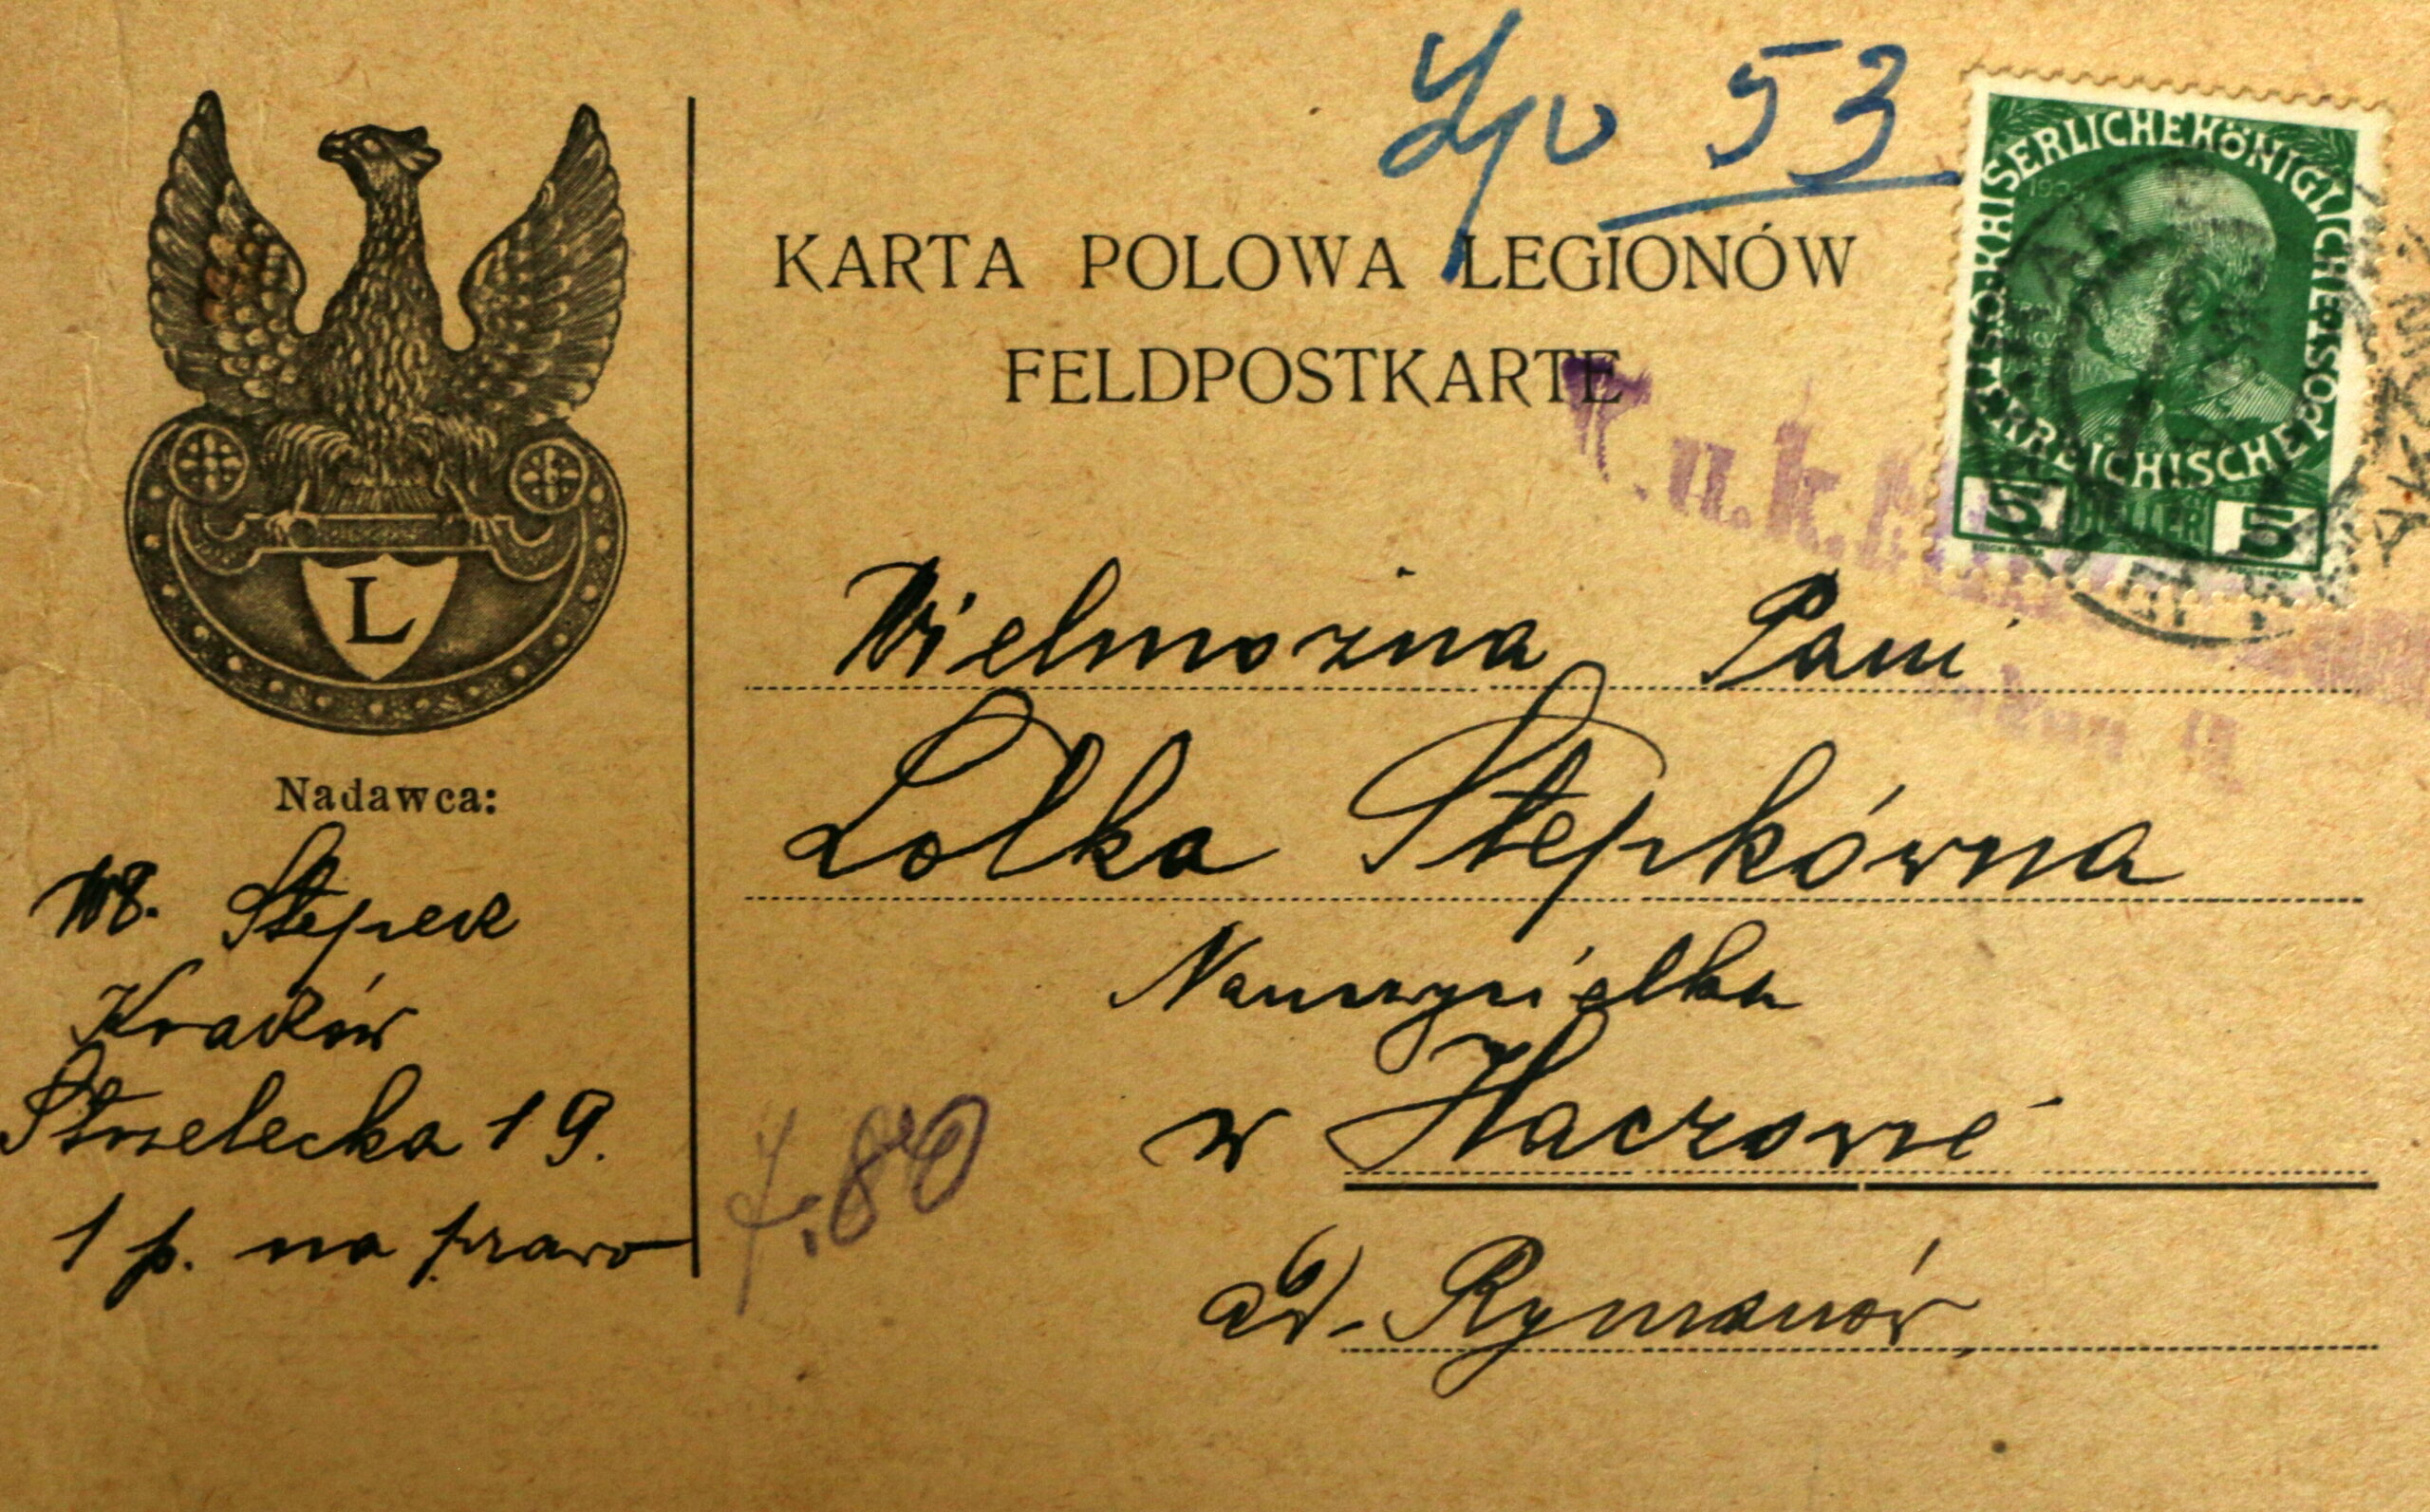 53
KARTA POLOWA LEGIONÓW
FELDPOSTKARTE
KAISERLICHE KÖNIGLICHE
ÖSTERREICHISCHE POST
1908
5 HELLER 5
K.u.k.
L
Nadawca:
Wł. Stepek
Kraków
Strzelecka 19.
1 p. na prawo
Wielmożna Pani
Lolka Stepkówna
Nauczycielka
w Haczowie
ad. Rymanów